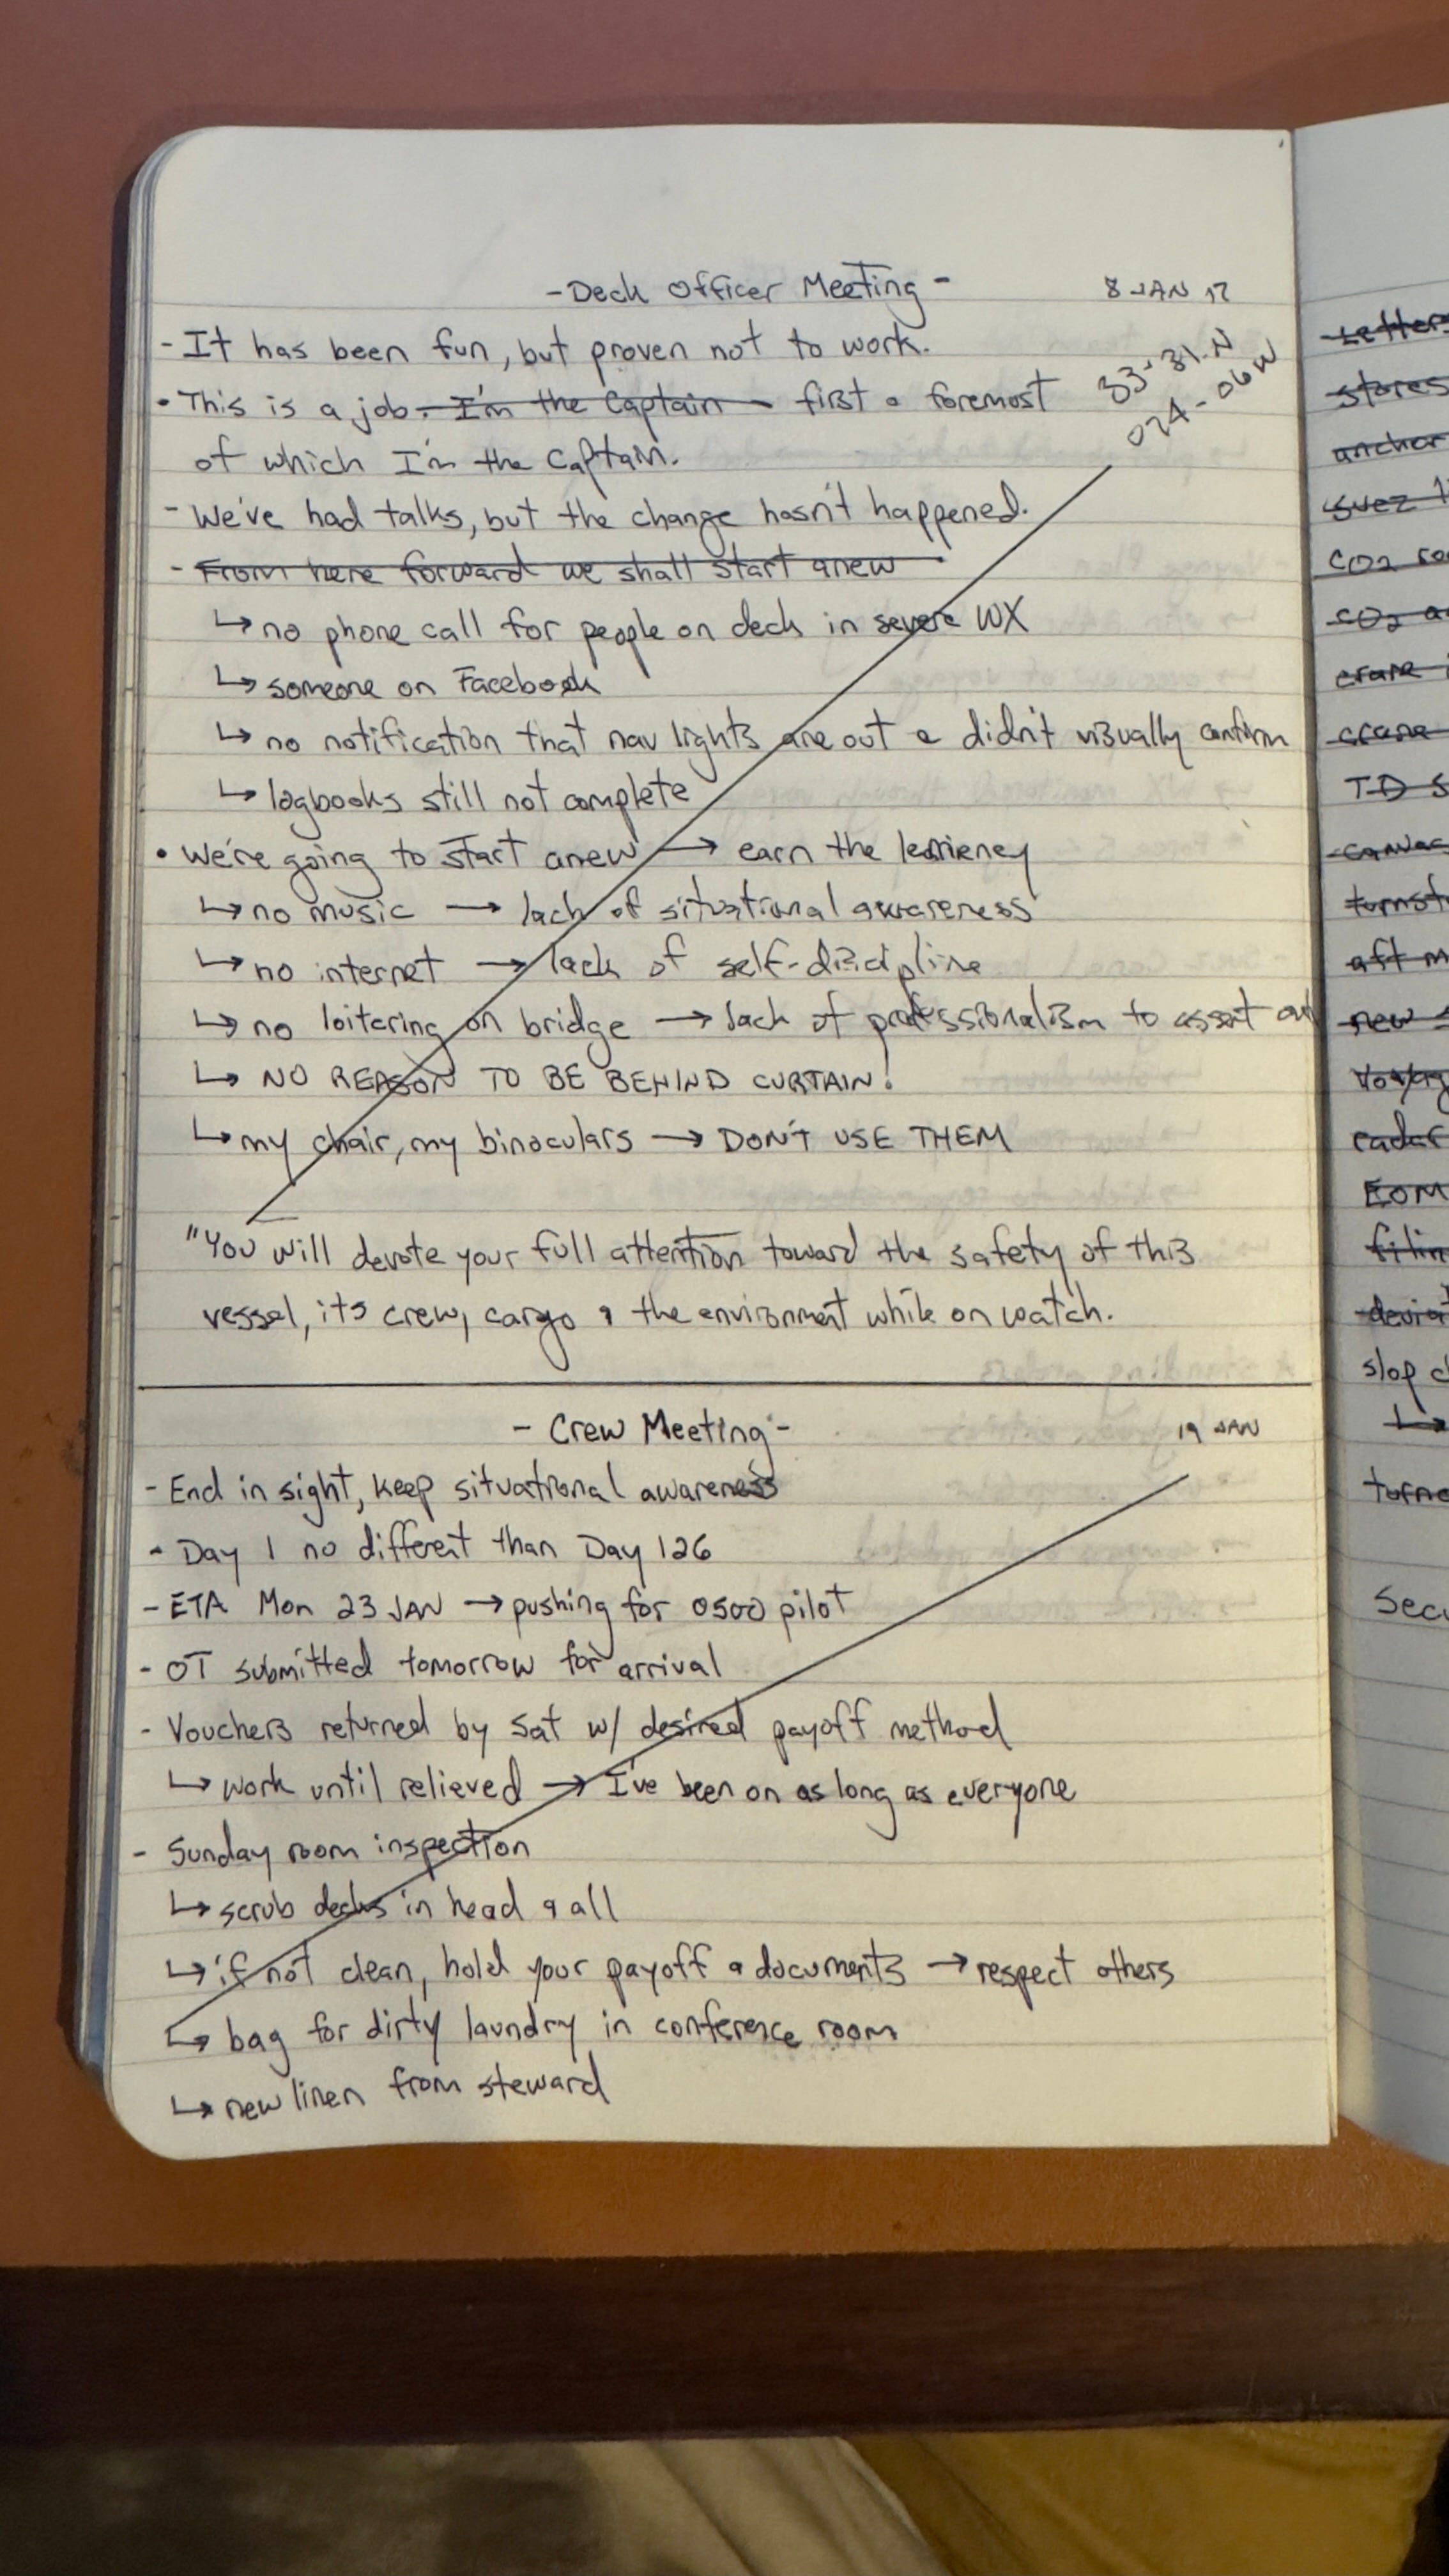 - Deck Officer Meeting -
8 JAN 17
- It has been fun, but proven not to work.
33-31.N
024-06W
• This is a job. I'm the Captain - first & foremost
of which I'm the Captain.
- We've had talks, but the change hasn't happened.
- From here forward we shall start anew
↳ no phone call for people on deck in severe WX
↳ someone on Facebook
↳ no notification that nav lights are out & didn't visually confirm
↳ logbooks still not complete
• We're going to start anew → earn the leniency
↳ no music → lack of situational awareness
↳ no internet → lack of self-discipline
↳ no loitering on bridge → lack of professionalism to assert
↳ NO REASON TO BE BEHIND CURTAIN!
↳ my chair, my binoculars → DON'T USE THEM
"You will devote your full attention toward the safety of this
vessel, its crew, cargo & the environment while on watch.
- Crew Meeting -
19 JAN
- End in sight, keep situational awareness
- Day 1 no different than Day 126
- ETA Mon 23 JAN → pushing for 0500 pilot
- OT submitted tomorrow for arrival
- Vouchers returned by Sat w/ desired payoff method
↳ work until relieved → I've been on as long as everyone
- Sunday room inspection
↳ scrub decks in head & all
↳ if not clean, hold your payoff & documents → respect others
↳ bag for dirty laundry in conference room
↳ new linen from steward
Letter
stores
anchor
suez
CO2
CO2
crane
crane
TD
canvas
aft
new
radar
EOM
slop